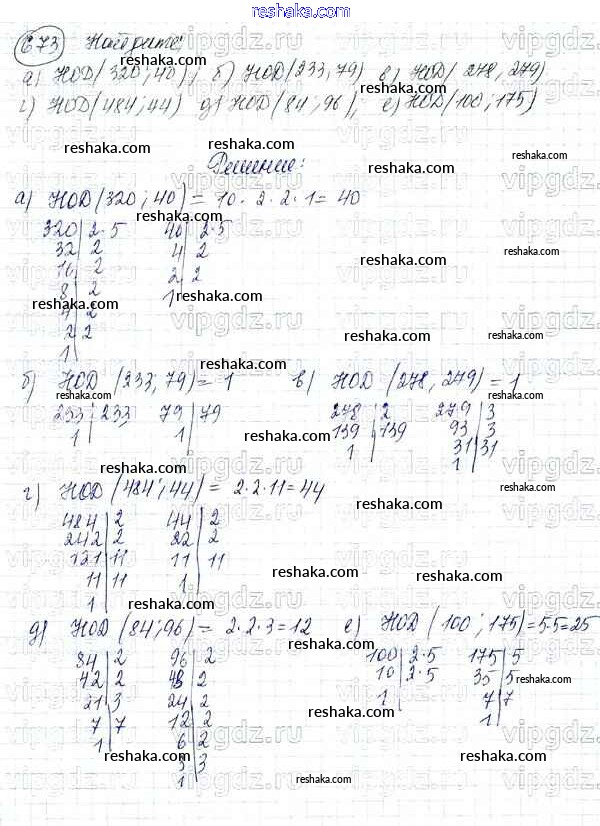 reshaka.com
673 Найдите:
а) НОД (320; 40); б) НОД (233, 79) в) НОД (278, 279)
г) НОД (484; 44) д) НОД (84; 96), е) НОД (100; 175)
Решение:
а) НОД (320; 40) = 10 · 2 · 2 · 1 = 40
320 | 2·5 40 | 2·5
32 | 2 4 | 2
16 | 2 2 | 2
8 | 2 1
4 | 2
2 | 2
1
б) НОД (233; 79) = 1 в) НОД (278, 279) = 1
233 | 233 79 | 79 278 | 2 279 | 3
1 1 139 | 139 93 | 3
1 31 | 31
1
г) НОД (484; 44) = 2·2·11 = 44
484 | 2 44 | 2
242 | 2 22 | 2
121 | 11 11 | 11
11 | 11 1
1
д) НОД (84; 96) = 2·2·3 = 12 е) НОД (100; 175) = 5·5 = 25
84 | 2 96 | 2 100 | 2·5 175 | 5
42 | 2 48 | 2 10 | 2·5 35 | 5
21 | 3 24 | 2 1 7 | 7
7 | 7 12 | 2 1
1 6 | 2
3 | 3
1